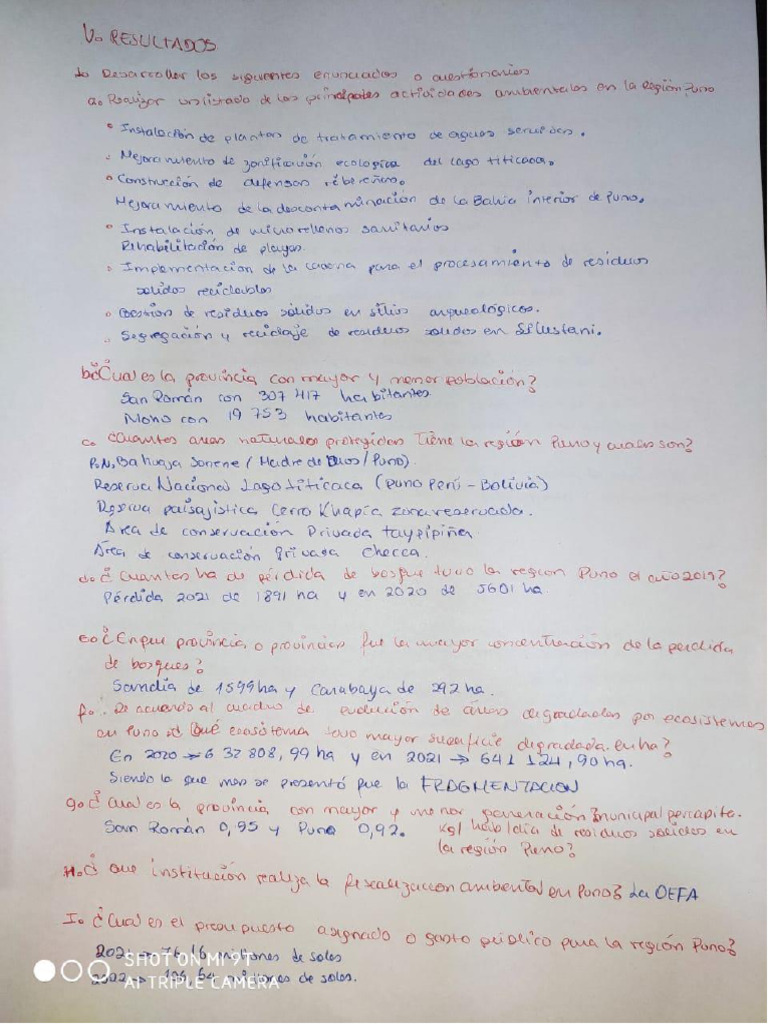 V. RESULTADOS
1. Desarrollar los siguientes enunciados o cuestionarios
a. Realizar un listado de las principales actividades ambientales en la región Puno
• Instalación de plantas de tratamiento de aguas servidas.
• Mejoramiento de zonificación ecologica del lago titicaca.
• Construcción de defensas ribereñas.
Mejoramiento de la descontaminación de la Bahia interior de Puno.
• Instalación de microrellenos sanitarios
Rehabilitación de playas.
• Implementacion de la cadena para el procesamiento de residuos
solidos reciclables
• Gestion de residuos sólidos en sitios arqueológicos.
• Segregación y reciclaje de residuos solidos en Sillustani.
b. ¿Cual es la provincia con mayor y menor población?
San Román con 307 417 habitantes
Moho con 19 753 habitantes
c. Cuantas areas naturales protegidas tiene la región Puno y cuales son?
P.N. Bahuaja Sonene (Madre de Dios/Puno).
Reserva Nacional Lago titicaca (Puno Perú - Bolivia)
Reserva paisajistica Cerro Khapia zona reservada.
Área de conservación Privada taypipiña
Área de conservación privada checca.
d. ¿Cuantas ha de pérdida de bosque tuvo la region Puno el año 2019?
Pérdida 2021 de 1891 ha y en 2020 de 5601 ha.
e. ¿En que provincia o provincias fue la mayor concentración de la perdida
de bosques?
Sandia de 1599 ha y Carabaya de 292 ha.
f. De acuerdo al cuadro de evolución de áreas degradadas por ecosistemas
en Puno ¿Qué ecosistema tuvo mayor superficie degradada en ha?
En 2020 → 632 808,99 ha y en 2021 → 641 124,90 ha.
Siendo la que mas se presentó fue la FRAGMENTACION
g. ¿Cual es la provincia con mayor y menor generación municipal percapita.
San Román 0,95 y Puno 0,92. kg/hab/día de residuos solidos en
la región Puno?
H. ¿Que institución realiza la fiscalizacion ambiental en Puno? La OEFA
I. ¿Cual es el presupuesto asignado o gasto público para la región Puno?
2021 → 76,16 millones de soles
2022 → millones de soles.
SHOT ON MI 9T
AI TRIPLE CAMERA